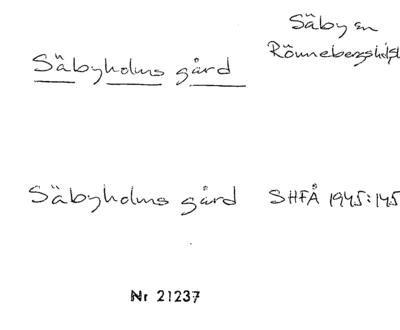 Säby sn
Rönnebergs hd
Säbyholms gård
Säbyholms gård SHFÅ 1945:145
Nr 21237